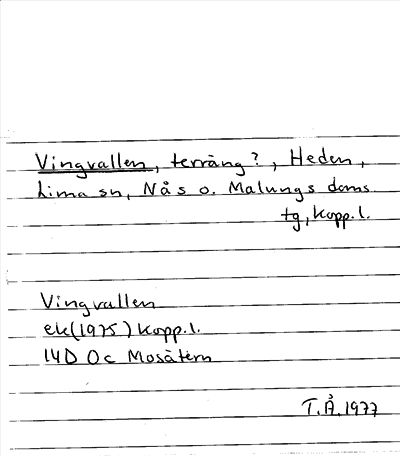 Vingvallen, terräng?, Heden,
Lima sn, Nås o. Malungs doms
tg, Kopp.l.
Vingvallen
ek(1975) Kopp.l.
14D 0c Mosätern
T.Å.1977